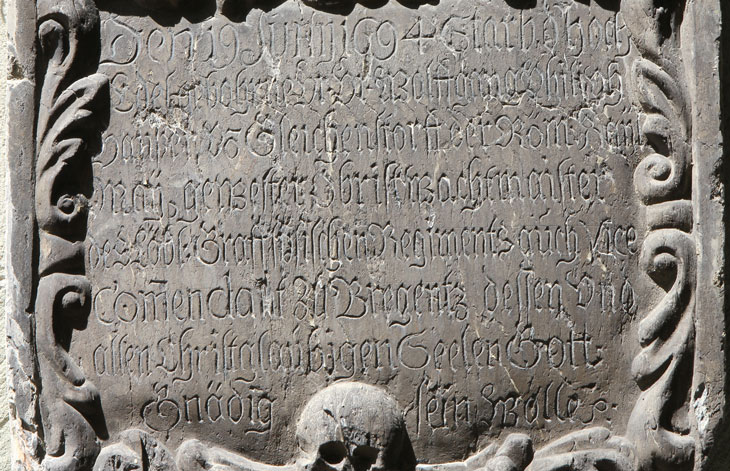 Den 19 Juny 1694 Starb d hoch
Edlgebohrne Hr Hr Wolffgang
Gleichenstorff der Röm Kay
May gewester Obristwachtmeister
des Löbl Regiments auch Vice
Comendant Zu Bregentz dessen Und
allen Christglaubigen Seelen Gott
Gnädig sein Wolle